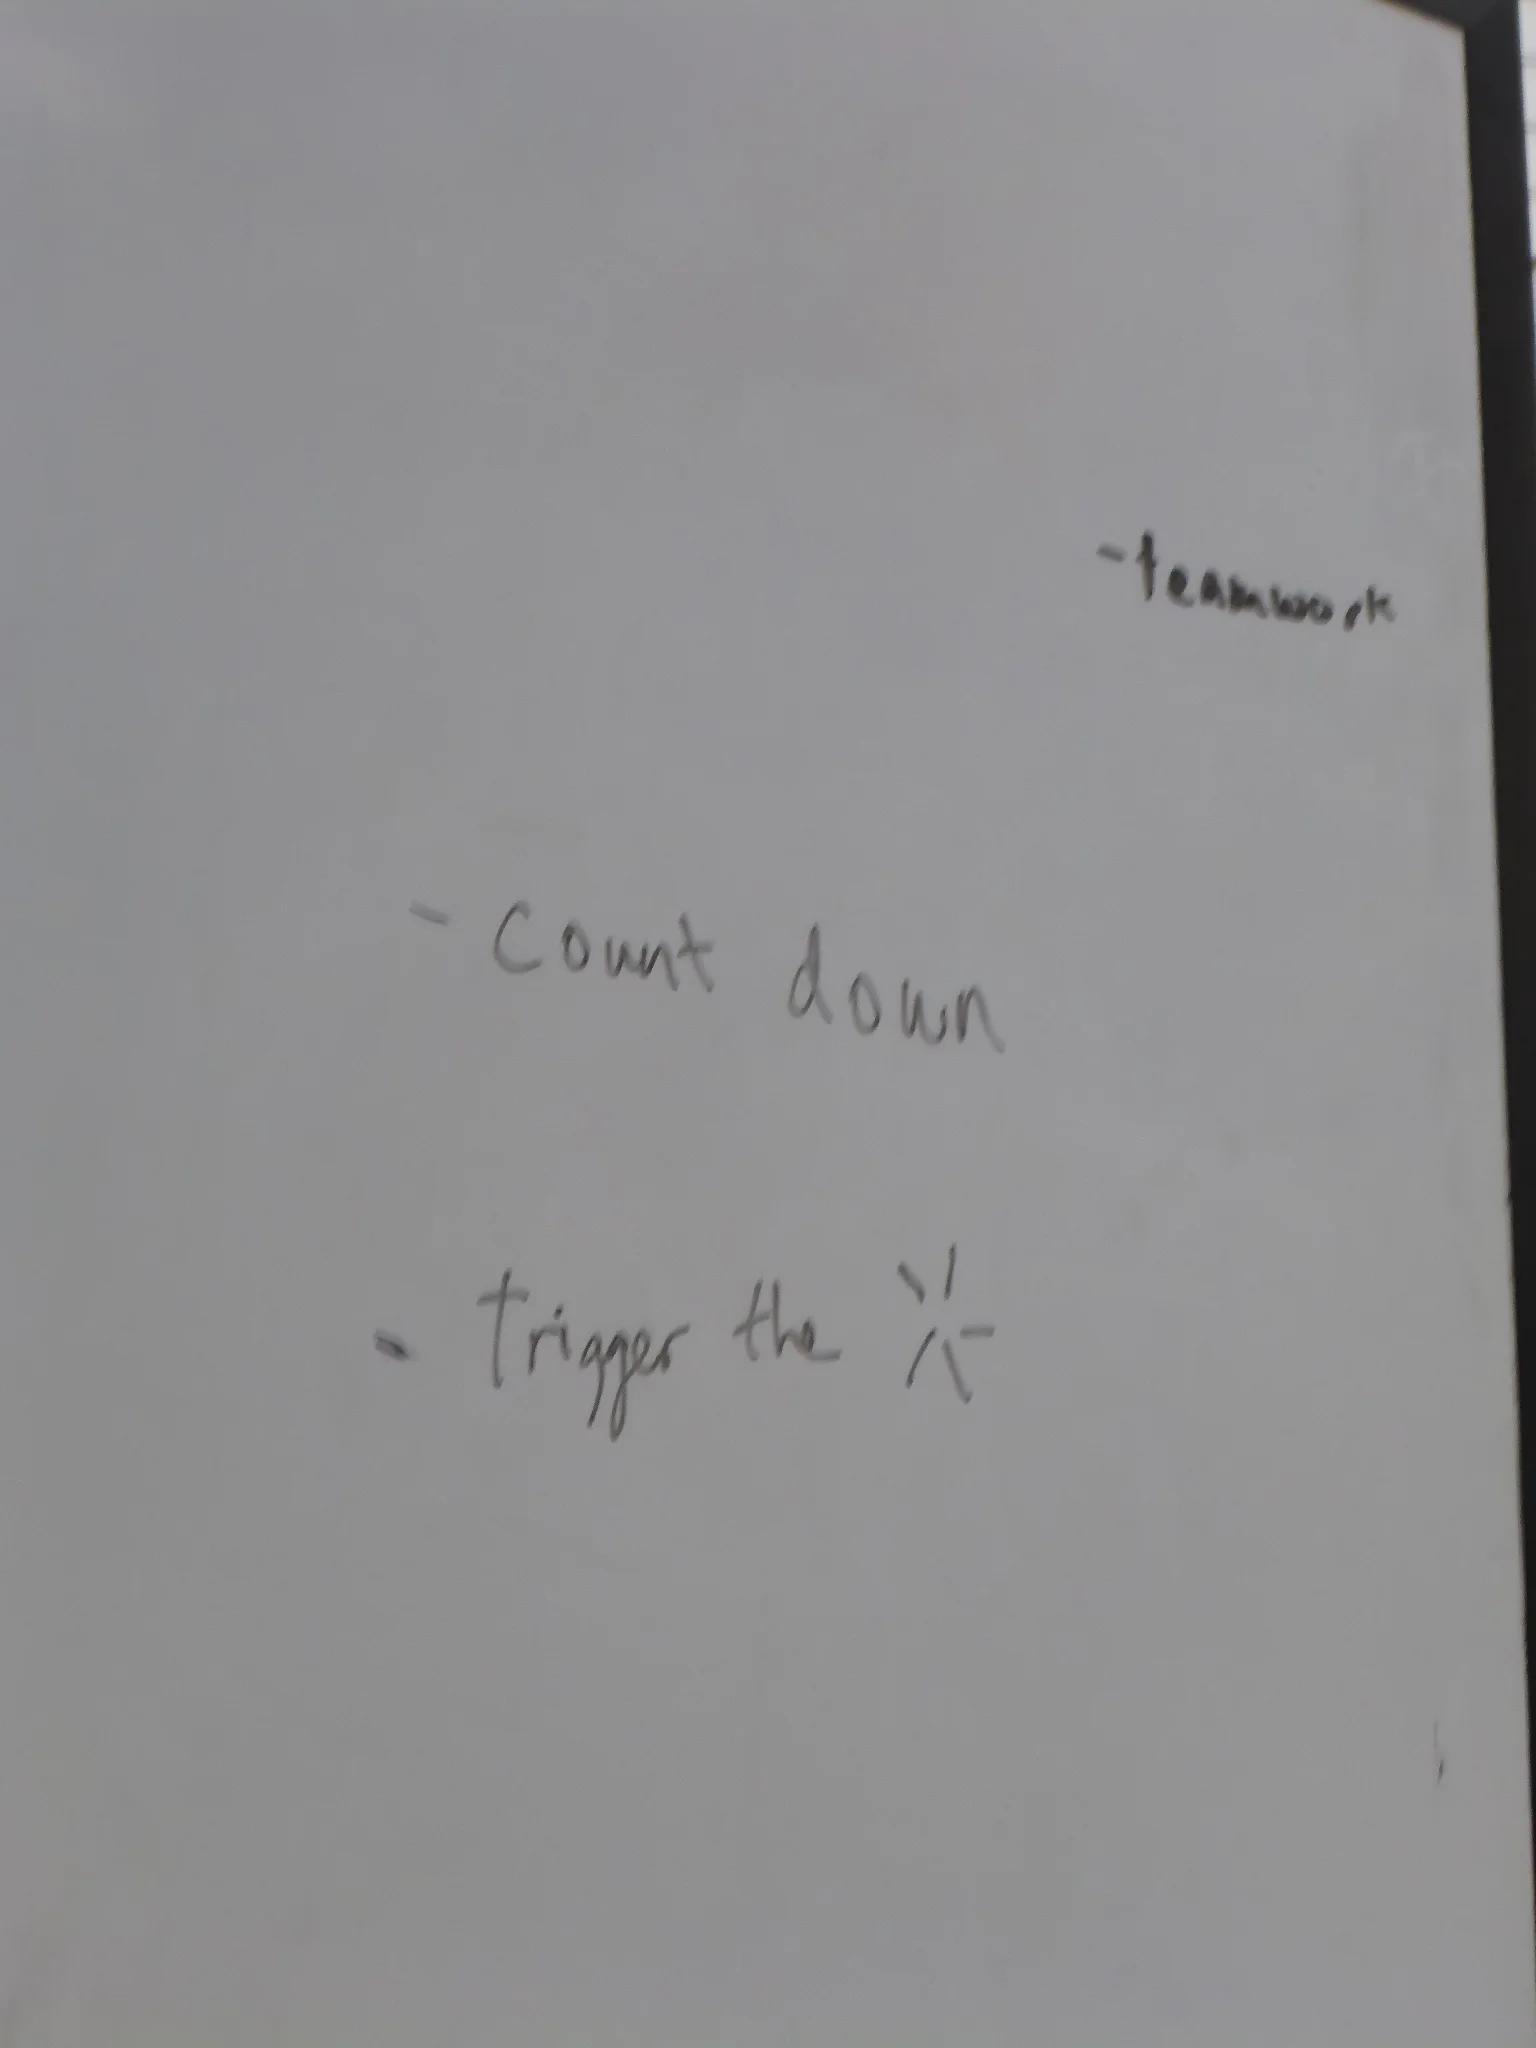 - teamwork
- Count down
- Trigger the